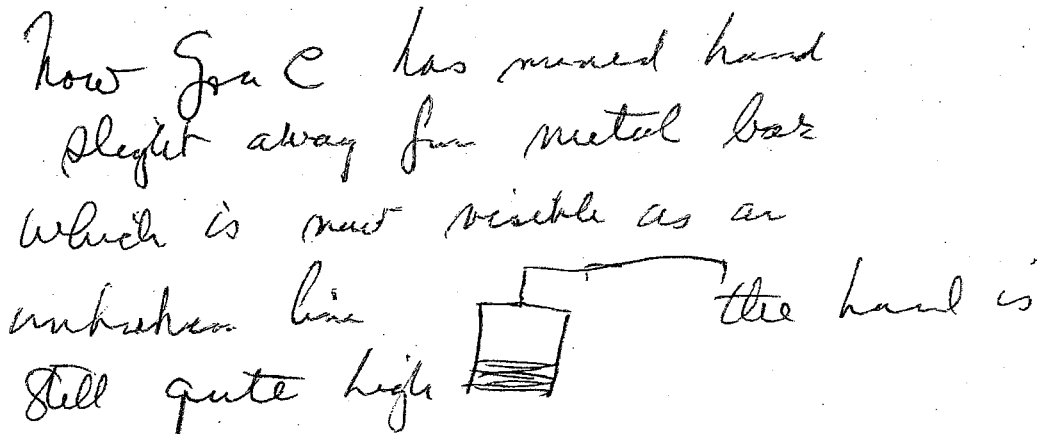 Now Gra C has moved hand
slight away from metal bar
which is now visible as an
unbroken line the hand is
still quite high